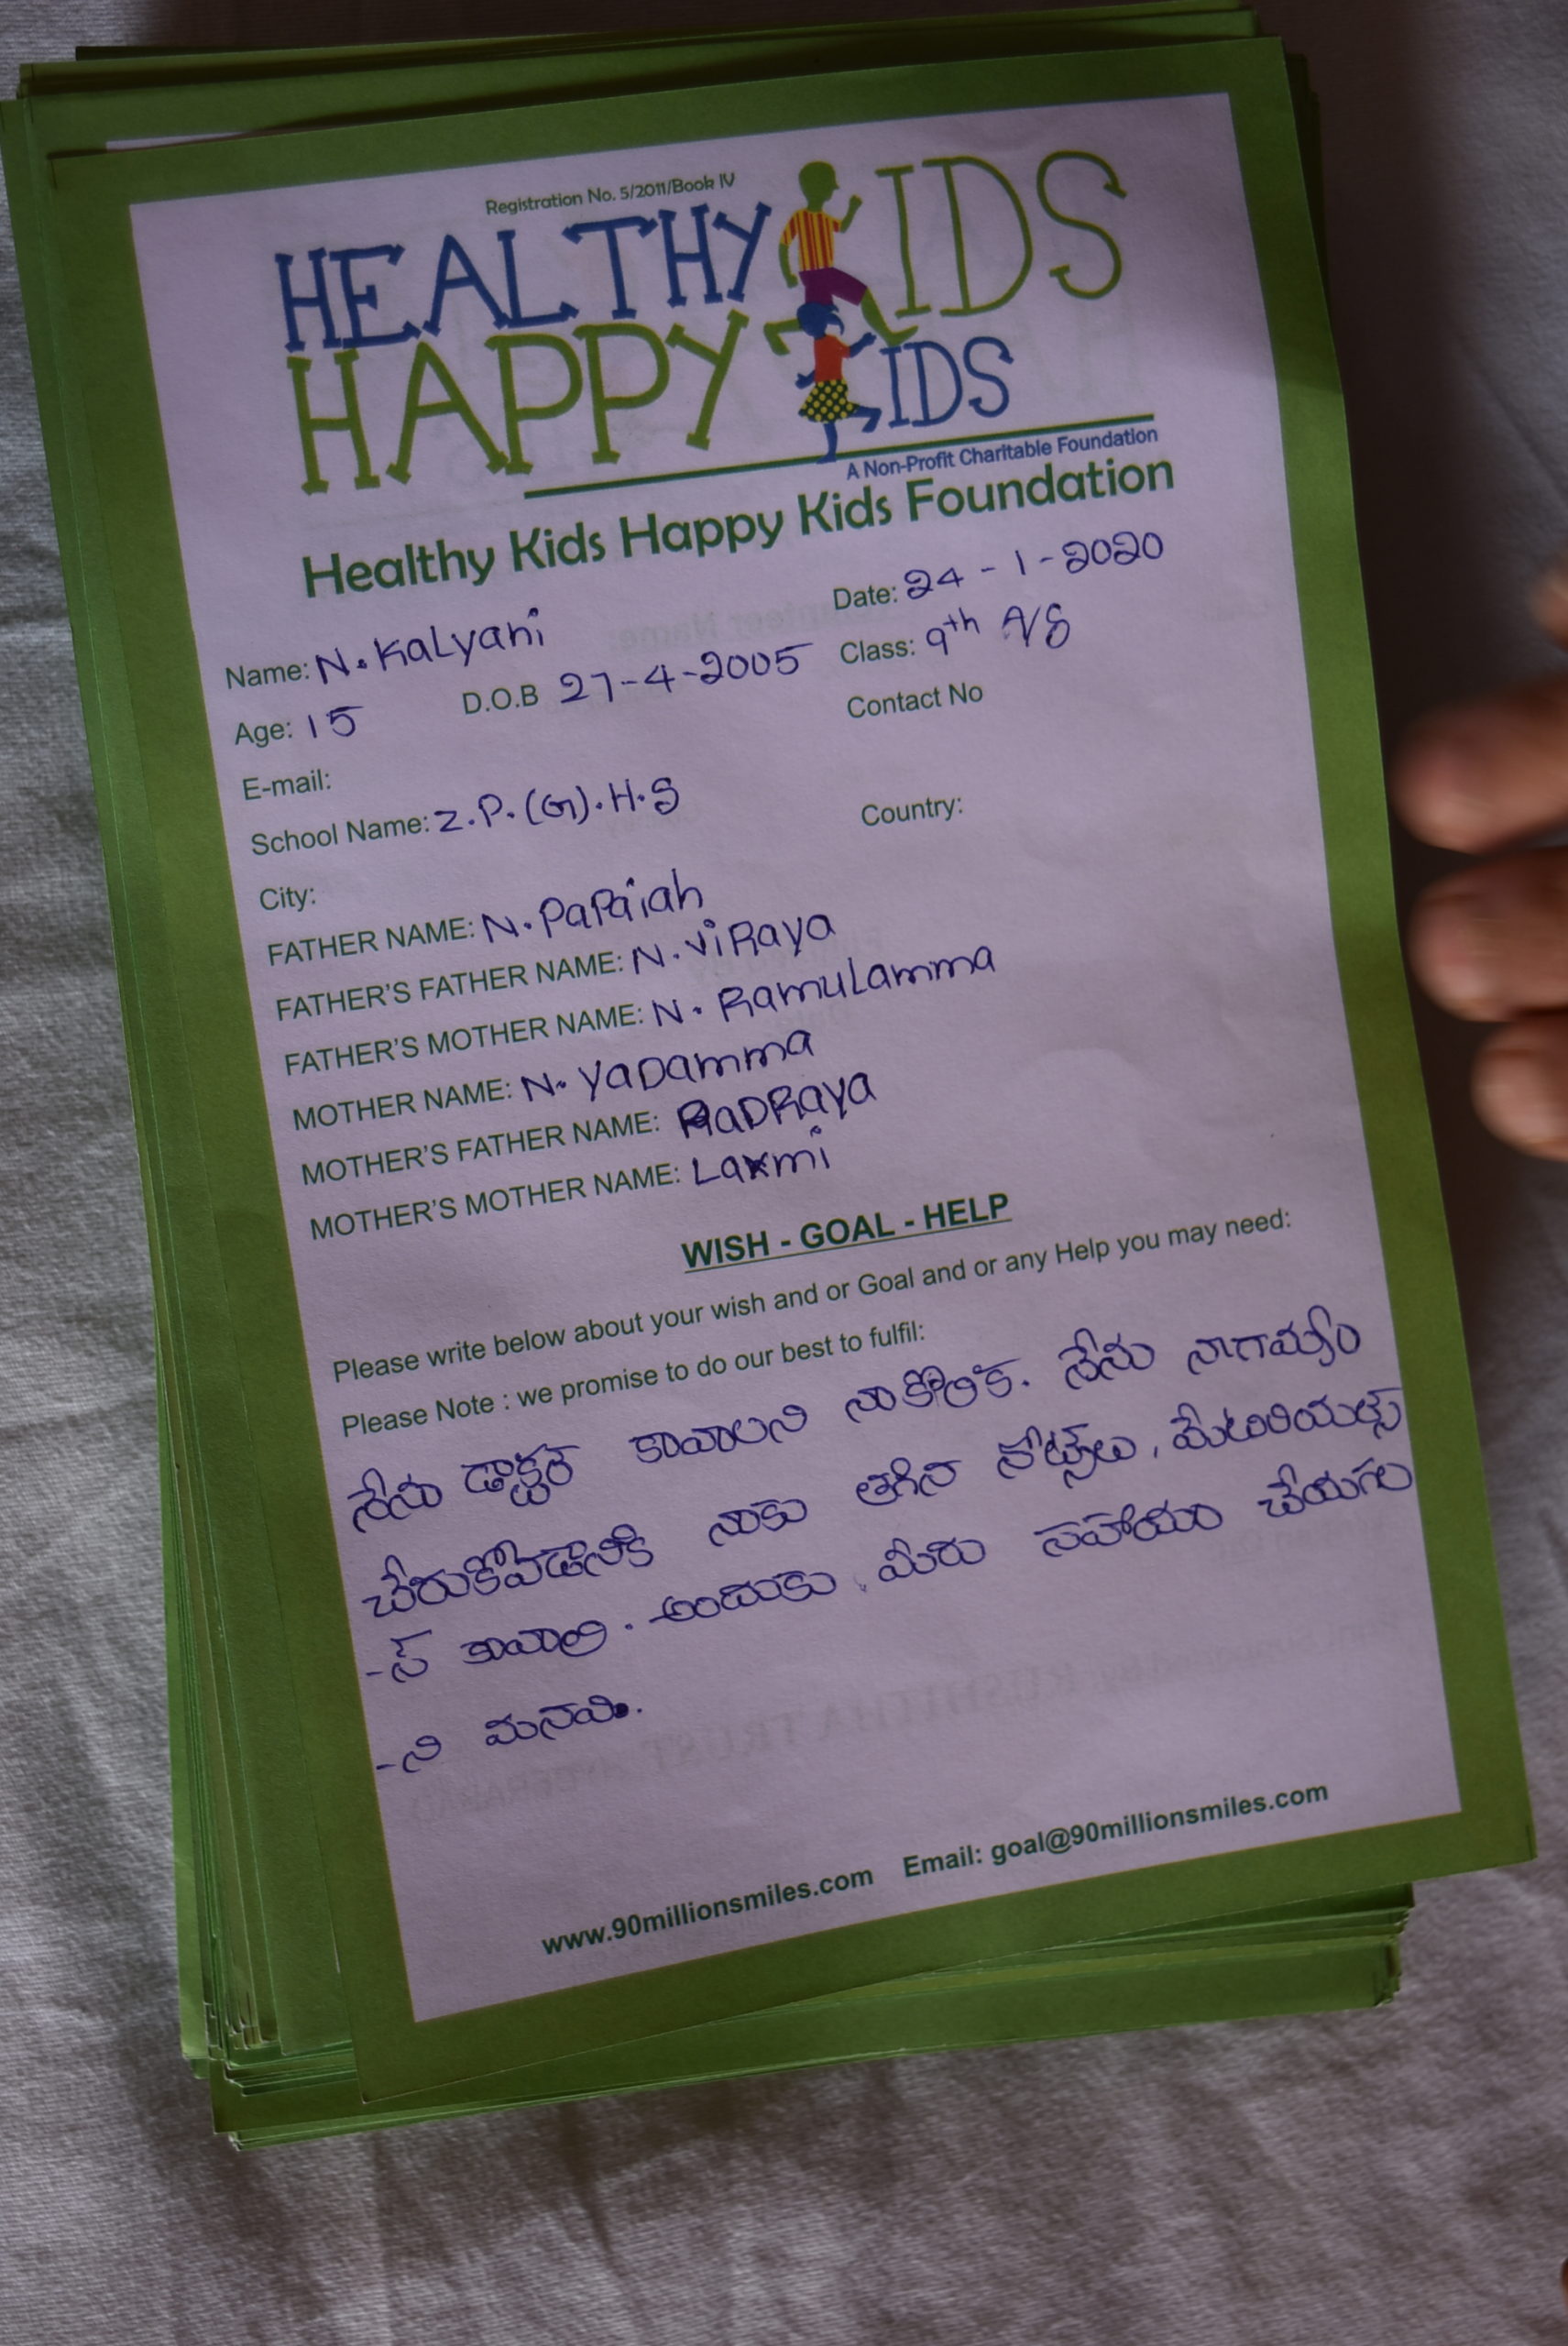 Registration No. 5/2011/Book IV
HEALTHY KIDS
HAPPY KIDS
A Non-Profit Charitable Foundation
Healthy Kids Happy Kids Foundation
Date: 24 - 1 - 2020
Name: N. Kalyani
Class: 9th
Age: 15 D.O.B 27-4-2005
Contact No
E-mail:
School Name: Z.P.(G).H.S
Country:
City:
FATHER NAME: N. Papaiah
FATHER'S FATHER NAME: N. ViRaya
FATHER'S MOTHER NAME: N. Ramulamma
MOTHER NAME: N. Yadamma
MOTHER'S FATHER NAME:
MOTHER'S MOTHER NAME: Laxmi
WISH - GOAL - HELP
Please write below about your wish and or Goal and or any Help you may need:
Please Note : we promise to do our best to fulfil:
నేను డాక్టర్ కావాలని నాకోరిక. నేను నాగమ్యం
చేరుకోవడానికి నాకు తగిన నోట్స్‌లు, మేటిరియల్స్
-స్ కావాలి. అందుకు, మీరు సహాయం చేయగల
-ని మనవి.
www.90millionsmiles.com Email: goal@90millionsmiles.com